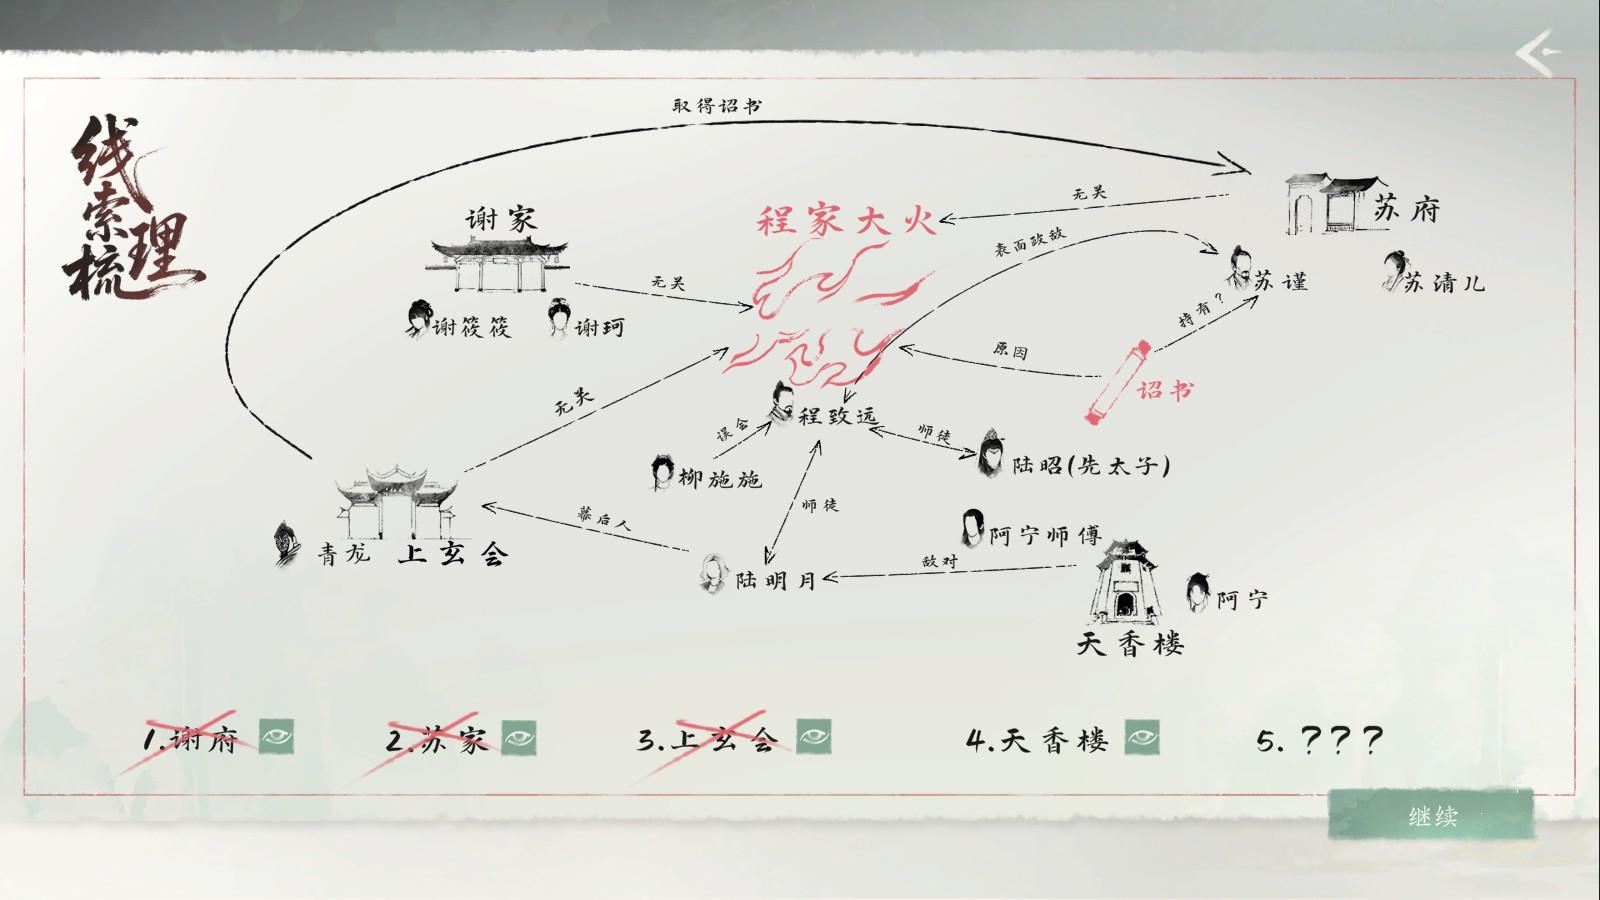 线索梳理
取得诏书
谢家
谢筱筱
谢珂
无关
程家大火
无关
苏府
表面政敌
苏谨
苏清儿
持有?
原因
诏书
无关
程致远
误会
柳施施
师徒
陆昭(先太子)
师徒
幕后人
青龙
上玄会
陆明月
敌对
阿宁师傅
阿宁
天香楼
1.谢府
2.苏家
3.上玄会
4.天香楼
5.???
继续